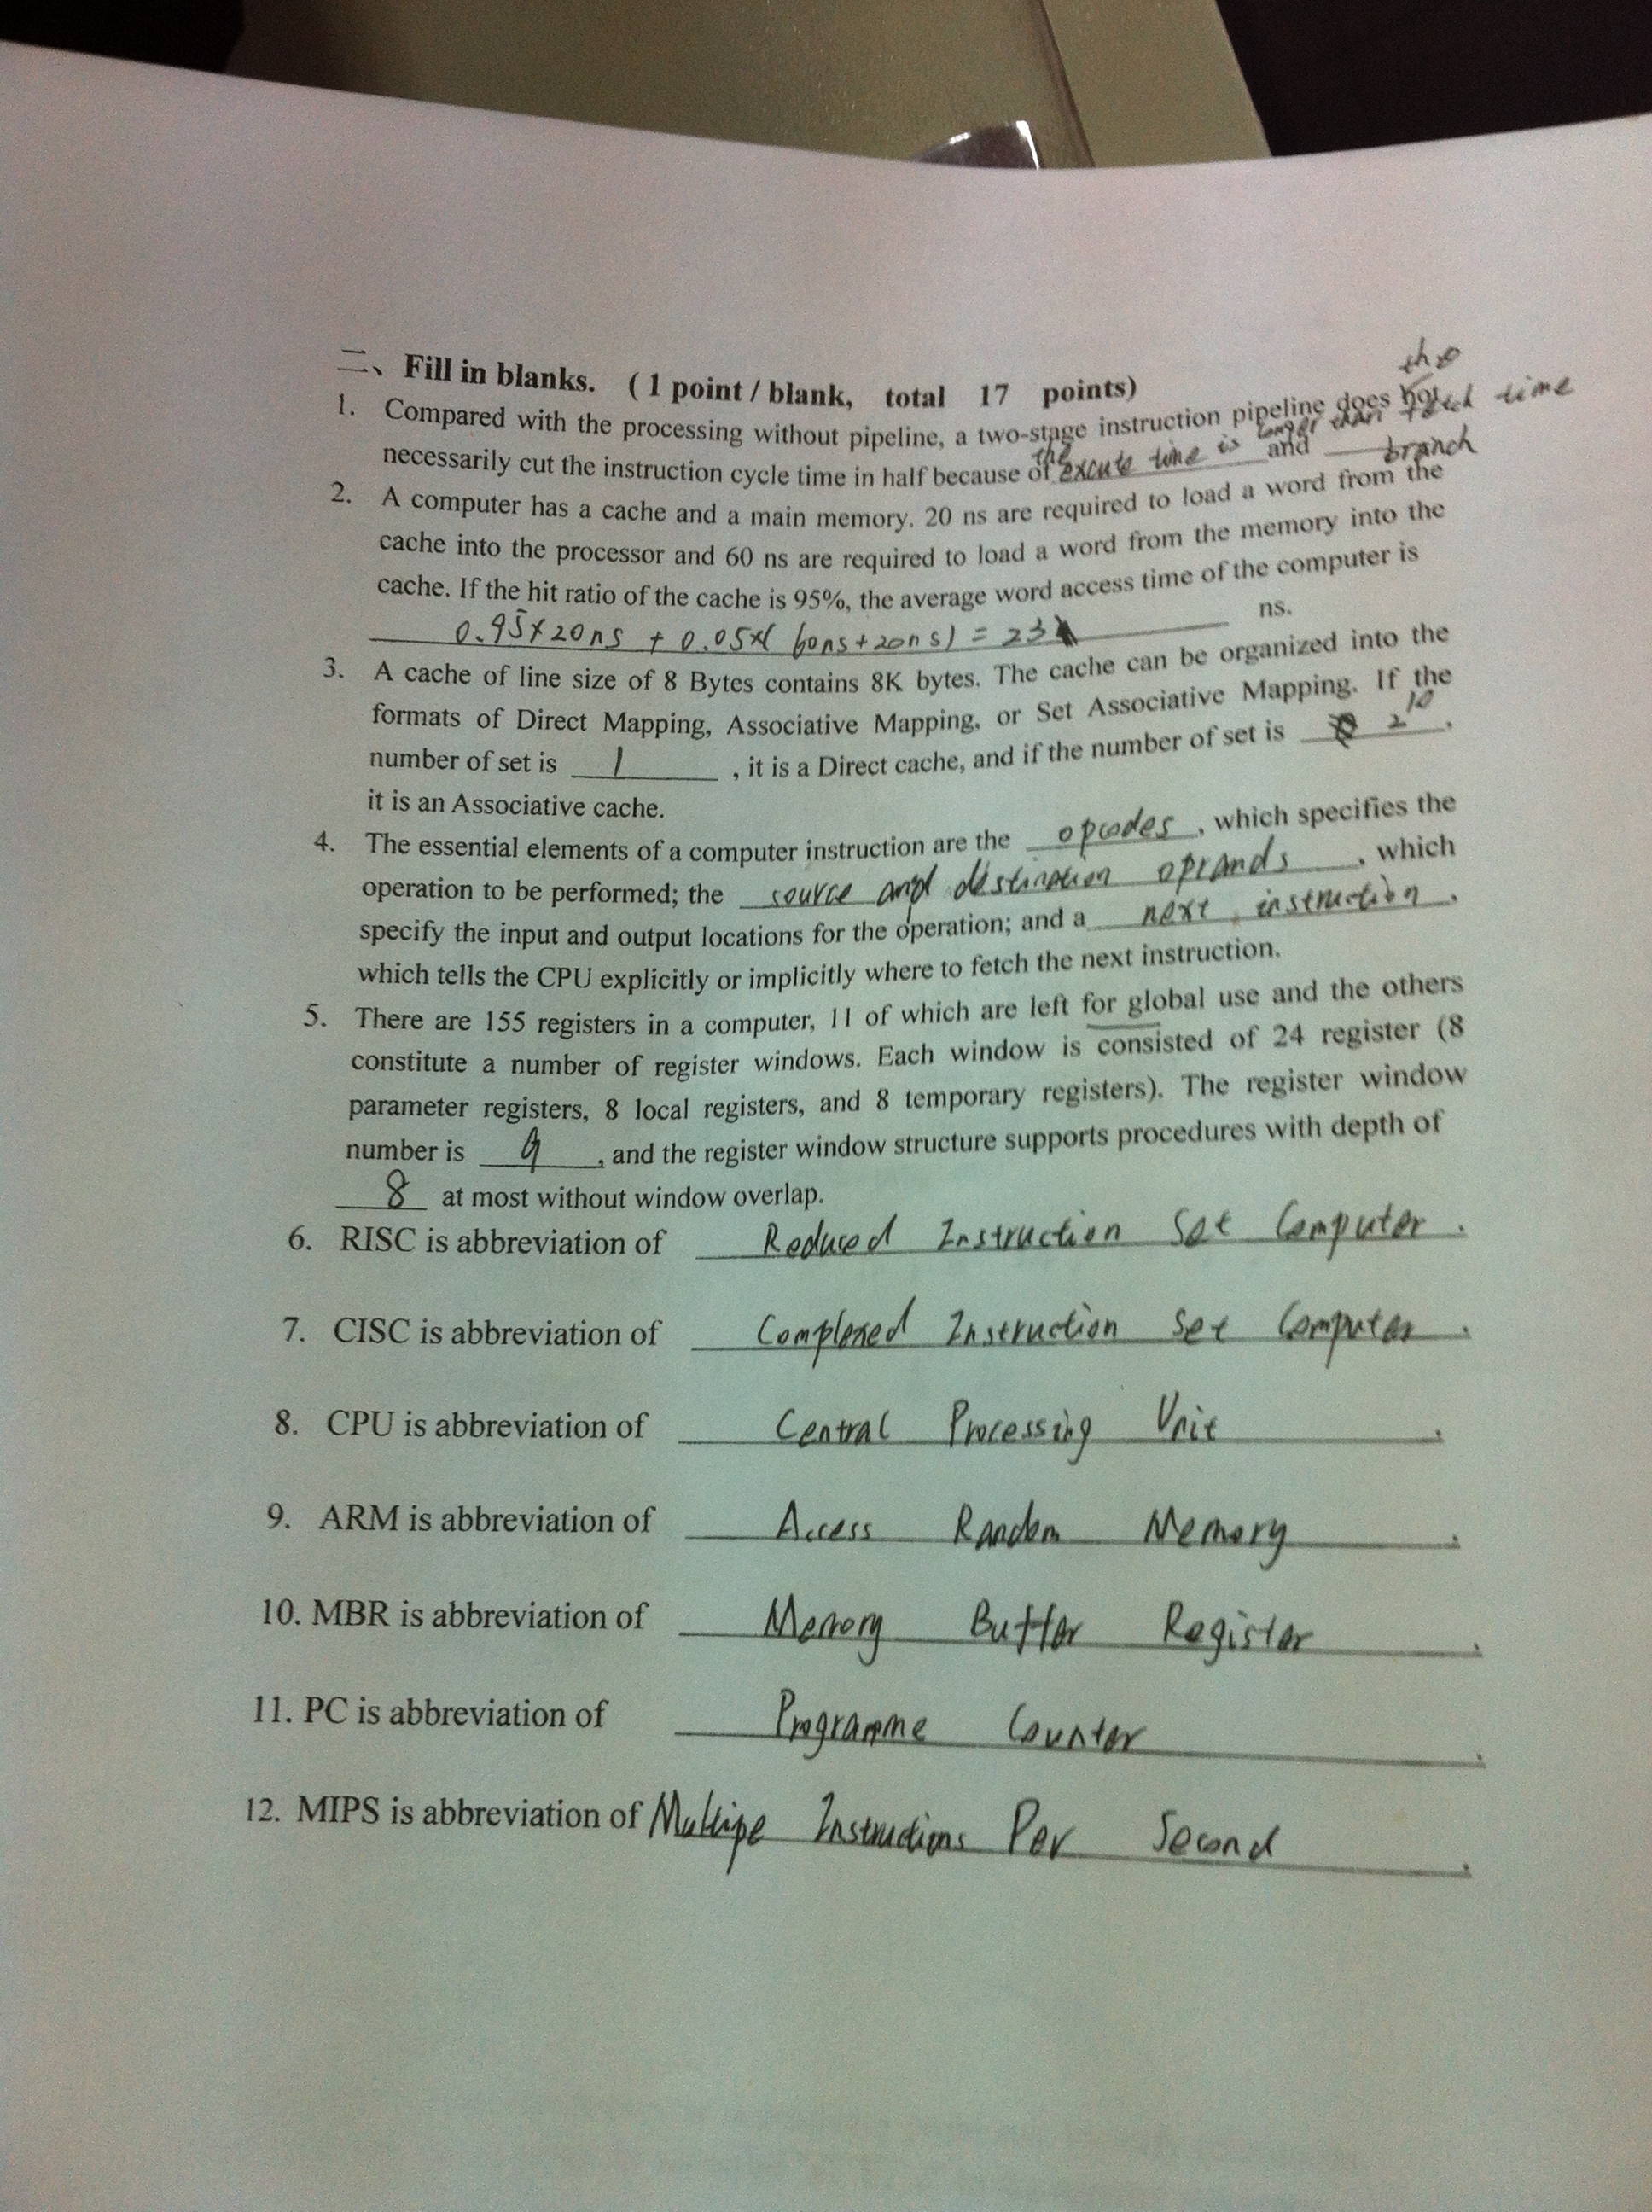 二、Fill in blanks. ( 1 point / blank, total 17 points)
the
1. Compared with the processing without pipeline, a two-stage instruction pipeline does not
longer than fetch time
necessarily cut the instruction cycle time in half because of the excute time is and branch
2. A computer has a cache and a main memory. 20 ns are required to load a word from the
cache into the processor and 60 ns are required to load a word from the memory into the
cache. If the hit ratio of the cache is 95%, the average word access time of the computer is
0.95×20ns + 0.05×(60ns+20ns) = 23 ns.
3. A cache of line size of 8 Bytes contains 8K bytes. The cache can be organized into the
formats of Direct Mapping, Associative Mapping, or Set Associative Mapping. If the
number of set is 1 , it is a Direct cache, and if the number of set is 2^10 .
it is an Associative cache.
4. The essential elements of a computer instruction are the opcodes , which specifies the
operation to be performed; the source and destination oprands , which
specify the input and output locations for the operation; and a next instruction .
which tells the CPU explicitly or implicitly where to fetch the next instruction.
5. There are 155 registers in a computer, 11 of which are left for global use and the others
constitute a number of register windows. Each window is consisted of 24 register (8
parameter registers, 8 local registers, and 8 temporary registers). The register window
number is 9 , and the register window structure supports procedures with depth of
8 at most without window overlap.
6. RISC is abbreviation of Reduced Instruction Set Computer .
7. CISC is abbreviation of Complexed Instruction Set Computer .
8. CPU is abbreviation of Central Processing Unit .
9. ARM is abbreviation of Access Random Memory .
10. MBR is abbreviation of Memory Buffer Register .
11. PC is abbreviation of Programme Counter .
12. MIPS is abbreviation of Multipe Instructions Per Second .